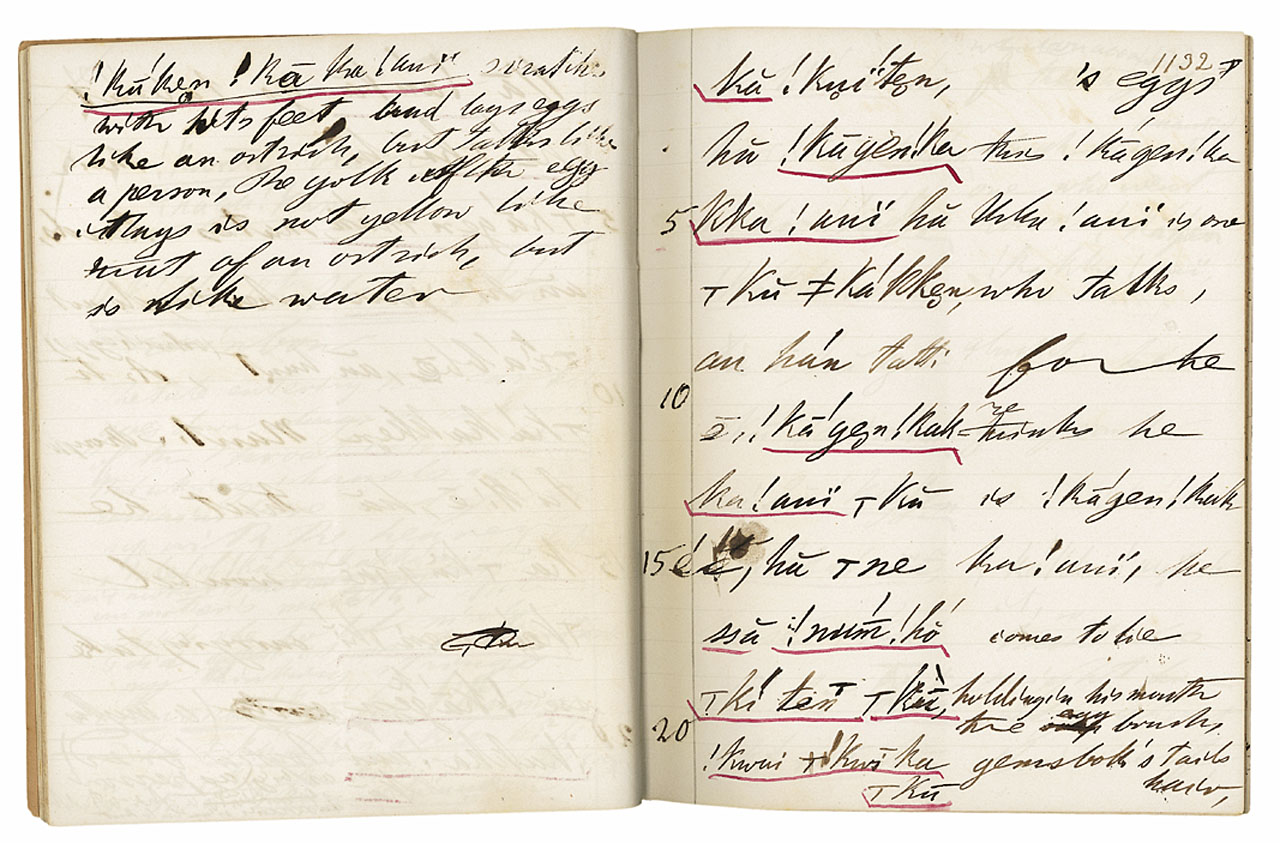 !kúken !kā ka !auï scratches
with its feet, and lays eggs
like an ostrich, but talks like
a person, The yolk of the egg
it lays is not yellow like
that of an ostrich, but
is like water
1132
kā !kuïtẹn, 's eggs
hū !kāgen!ka this !kāgen!ka
5 kka !auï hū kka !auï is one
ㅜkū ǂkákkẹn, who talks,
au hán tatti for he
10
ē, !kágẹn!kak- thinks he
ka !auï ㅜkū is !kágen!kak
15 é hū ㅜne ka !auï, he
ssā !num !hó comes to lie
ㅜkí ten ㅜkū, holding in his mouth
the brush,
20
!kwai !kwï ka gemsbok's tails
ㅜkū hair,